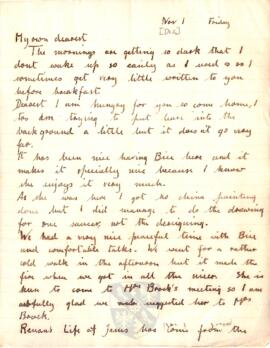 Nov 1 Friday
[Dec]
My own dearest
The mornings are getting so dark that I
dont wake up so easily as I used to so I
sometimes get very little written to you
before breakfast.
Dearest I am hungry for you so come home, I
too am trying to put love into the
background a little but it does not go very
far.
It has been nice having Bice here and it
makes it specially nice because I know
she enjoys it very much.
As she was here I got no china painting
done but I did manage to do the drawing
for one saucer, not the designing.
We had a very nice peaceful time with Bice
and comfortable talks. We went for a rather
cold walk in the afternoon but it made the
fire when we got in all the nicer. She is
keen to come to Mrs Brock's meeting so I am
awfully glad we suggested her to Mrs
Brock.
Renans Life of Jesus has come from the